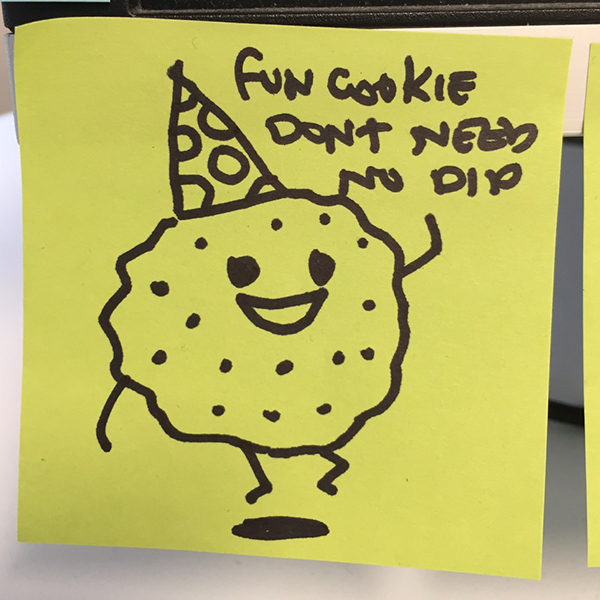 FUN COOKIE
DONT NEED
NO DIP